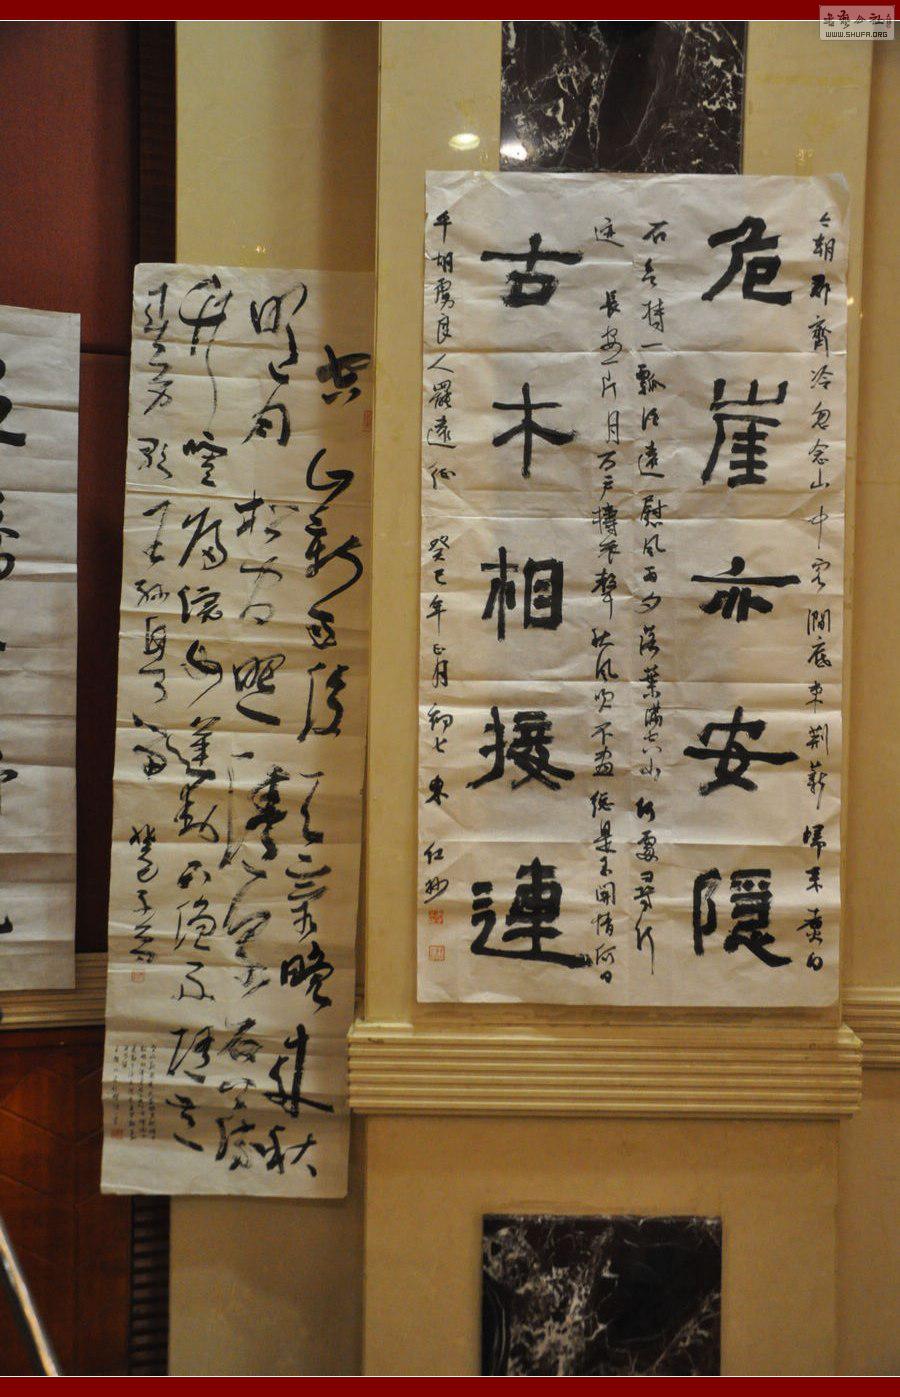 今朝郡齋冷忽念山中客澗底束荆薪歸來煑白
危崖亦安隱
石欲持一瓢酒遠慰風雨夕落葉滿空山何處尋行
迹 長安一片月万戶擣衣聲秋風吹不盡總是玉関情何日
古木相接連
平胡虜良人罷遠征 癸巳年正月初七東紅抄
空山新雨後天氣晚來秋
明月松間照清泉石上流
竹喧歸浣女蓮動下漁舟隨意
春芳歇王孫自可留
WWW.SHUFA.ORG